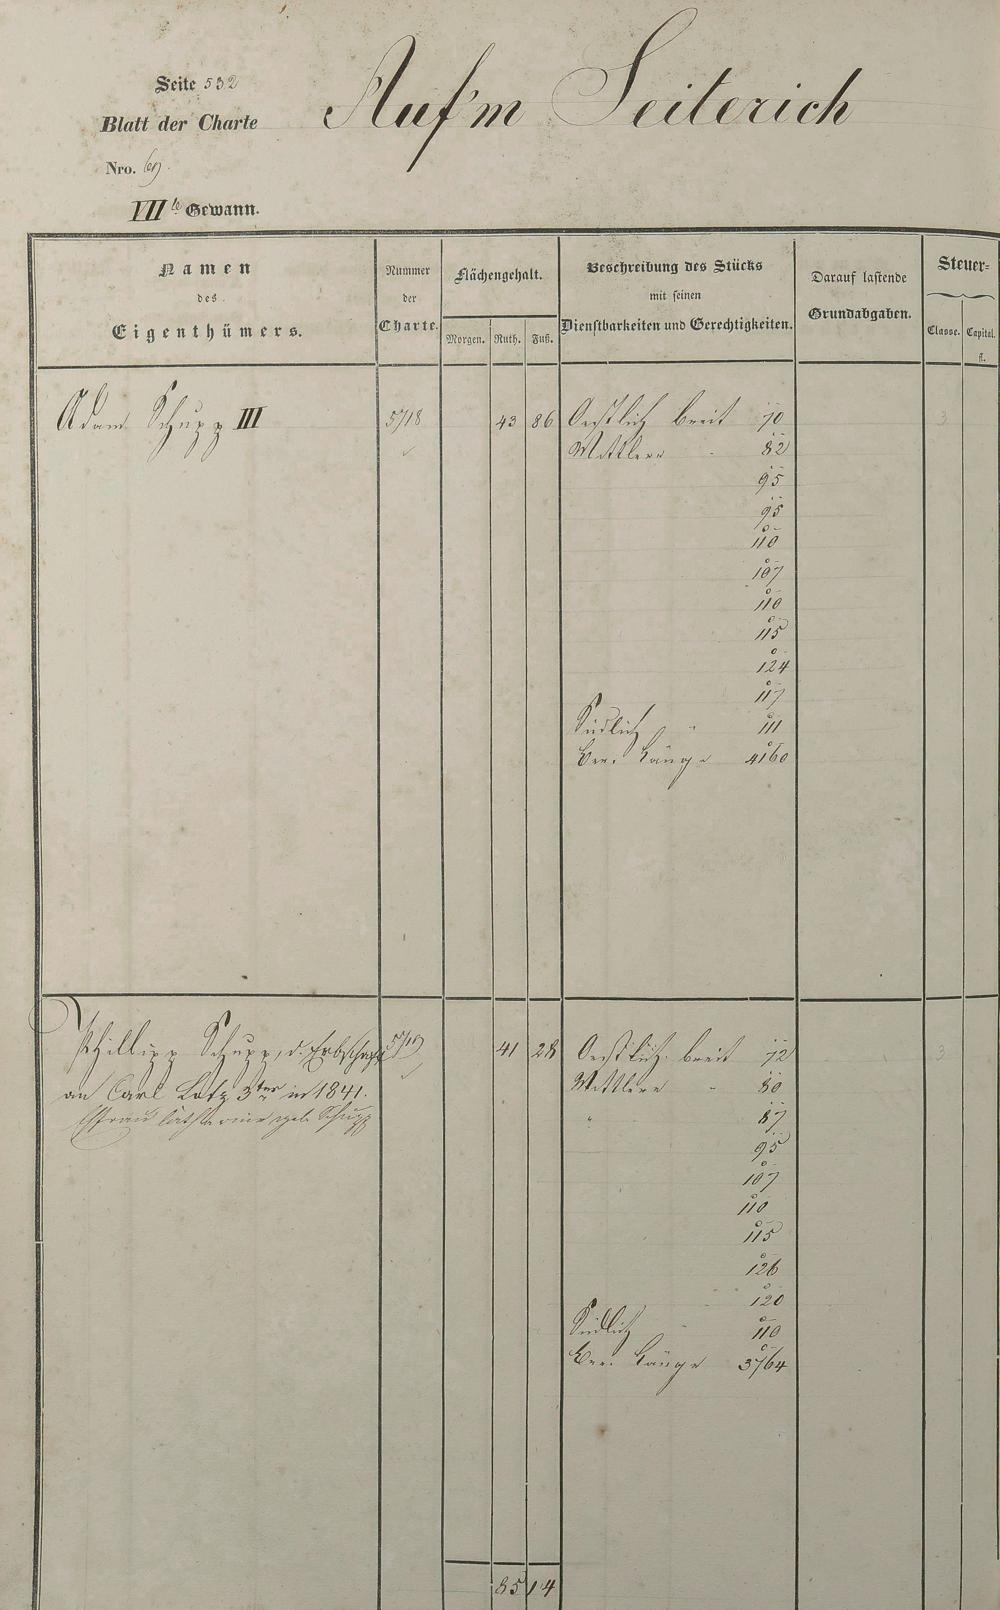 Seite 532
Auf'm Seiterich
Blatt der Charte
Nro. 69.
VIIte Gewann.
Namen
des
Eigenthümers.
Nummer
der
Charte.
Flächengehalt.
Morgen. Ruth. Fuß.
Beschreibung des Stücks
mit seinen
Dienstbarkeiten und Gerechtigkeiten.
Darauf lastende
Grundabgaben.
Steuer-
Classe. Capital.
fl.
Adam Schupp III 5718 43 86 Oestlich breit 70 3
Mittlere " 82
95
95
110
107
110
115
124
117
Südlich " 111
Ber. Länge 4160
Phillipp Schupp, d. Erbschaft 5719 41 28 Oestlich breit 72 3
an Carl Lotz 3ter in 1841. Mittlere " 80
Ehfrau Catharine geb. Schupp " 87
95
107
110
115
126
120
Südlich " 110
Ber. Länge 3764
85 14